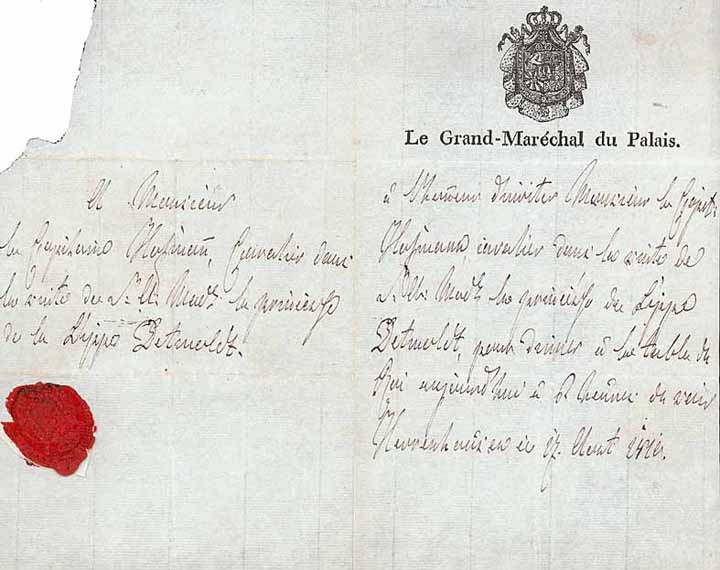 A Monsieur
le Capitaine Hofmann, Cavalier dans
la suite de S. A. Mad. la princesse
de la Lippe Detmoldt.
Le Grand-Maréchal du Palais.
à l'honneur d'inviter Monsieur le Capit.
Hofmann, cavalier dans la suite de
S. A. Mad. la princesse de Lippe
Detmoldt, pour diner à la table du
Roi aujourdhui à heures du soir
Herrenhausen ce 17. Aout